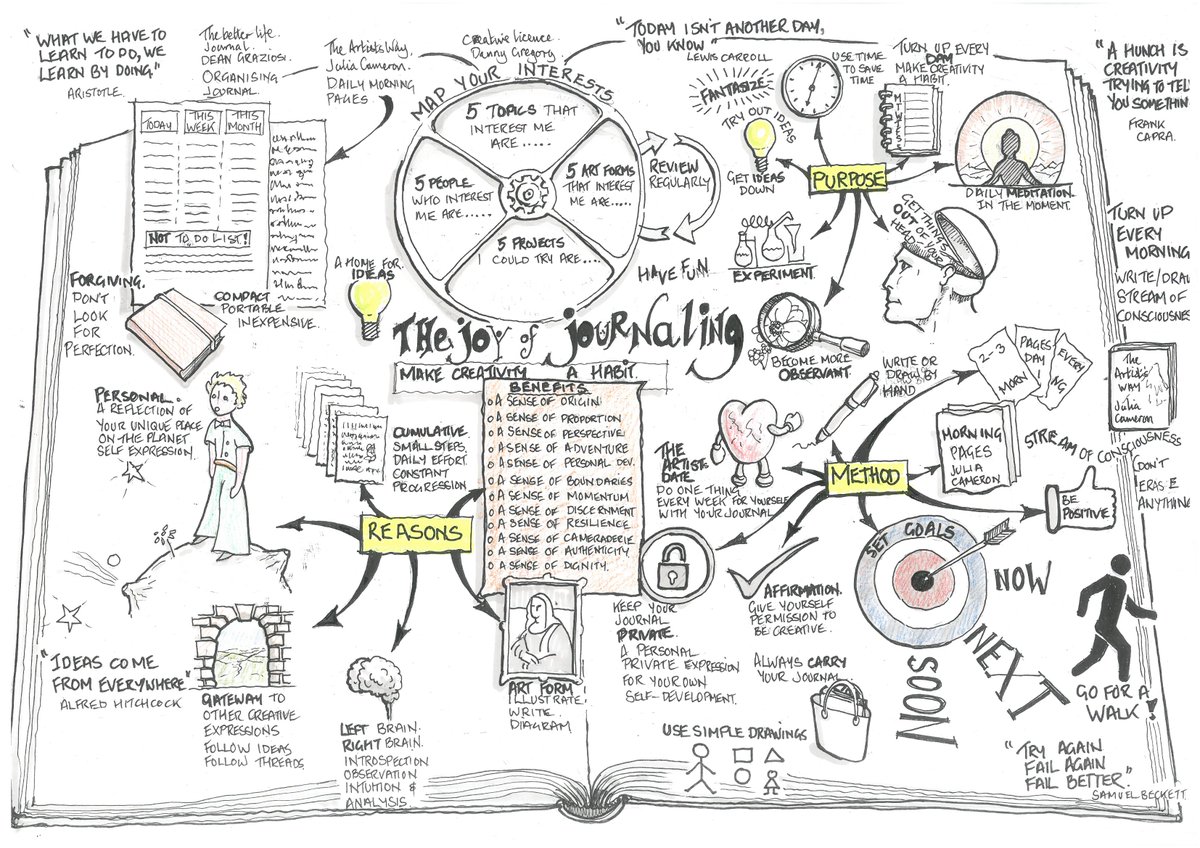 "WHAT WE HAVE TO
LEARN TO DO, WE
LEARN BY DOING."
ARISTOTLE.
The better life.
Journal.
DEAN GRAZIOSI.
ORGANISING
JOURNAL.
The Artist's Way.
Julia Cameron.
DAILY MORNING
PAGES
Creative Licence
Danny Gregory
"TODAY ISN'T ANOTHER DAY,
YOU KNOW"
LEWIS CARROLL
USE TIME
TO SAVE
TIME
TURN UP EVERY
DAY
MAKE CREATIVITY
A HABIT.
"A HUNCH IS
CREATIVITY
TRYING TO TEL
YOU SOMETHIN
FRANK
CAPRA.
TODAY
THIS
WEEK
THIS
MONTH
NOT TO DO LIST!
MAP YOUR INTERESTS
5 TOPICS THAT
INTEREST ME
ARE .....
5 PEOPLE
WHO INTEREST
ME ARE.....
5 ART FORMS
THAT INTEREST
ME ARE.....
5 PROJECTS
I COULD TRY ARE....
REVIEW
REGULARLY
HAVE FUN
FANTASIZE
TRY OUT IDEAS
GET IDEAS
DOWN
PURPOSE
EXPERIMENT
DAILY MEDITATION
IN THE MOMENT.
GET THINGS
OUT OF YOUR
HEAD
BECOME MORE
OBSERVANT
TURN UP
EVERY
MORNING
WRITE/DRAW
STREAM OF
CONSCIOUSNE
FORGIVING.
DON'T
LOOK
FOR
PERFECTION.
COMPACT
PORTABLE
INEXPENSIVE.
A HOME FOR
IDEAS
THE JOY of JOURNALING
MAKE CREATIVITY A HABIT.
PERSONAL.
A REFLECTION OF
YOUR UNIQUE PLACE
ON THE PLANET
SELF EXPRESSION.
CUMULATIVE.
SMALL STEPS.
DAILY EFFORT.
CONSTANT
PROGRESSION.
BENEFITS
A SENSE OF ORIGIN.
A SENSE OF PROPORTION
A SENSE OF PERSPECTIVE.
A SENSE OF ADVENTURE
A SENSE OF PERSONAL DEV.
A SENSE OF BOUNDARIES
A SENSE OF MOMENTUM
A SENSE OF DISCERNMENT
A SENSE OF RESILIENCE.
A SENSE OF CAMERADERIE
A SENSE OF AUTHENTICITY
A SENSE OF DIGNITY.
REASONS
"IDEAS COME
FROM EVERYWHERE"
ALFRED HITCHCOCK
GATEWAY TO
OTHER CREATIVE
EXPRESSIONS
FOLLOW IDEAS
FOLLOW THREADS
LEFT BRAIN.
RIGHT BRAIN.
INTROSPECTION
OBSERVATION
INTUITION &
ANALYSIS.
ART FORM
ILLUSTRATE
WRITE
DIAGRAM
WRITE OR
DRAW BY
HAND
2-3
PAGES
DAY
EVERY
MORN
I
NG
The
Artist's
Way
Julia
Cameron
MORNING
PAGES
JULIA
CAMERON
STREAM OF CONSCIOUSNESS
DON'T
ERASE
ANYTHING
METHOD
BE
POSITIVE
THE
ARTIST
DATE
DO ONE THING
EVERY WEEK FOR YOURSELF
WITH YOUR JOURNAL
KEEP YOUR
JOURNAL
PRIVATE.
A PERSONAL
PRIVATE EXPRESSION
FOR YOUR OWN
SELF-DEVELOPMENT.
AFFIRMATION.
GIVE YOURSELF
PERMISSION TO
BE CREATIVE.
SET GOALS
NOW
NEXT
SOON
ALWAYS CARRY
YOUR JOURNAL
USE SIMPLE DRAWINGS
GO FOR A
WALK!
"TRY AGAIN
FAIL AGAIN
FAIL BETTER."
SAMUEL BECKETT.